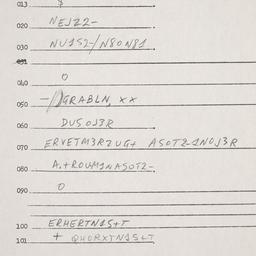 013 $
020 NEJ22-
030 NU152-/N80N81
031
040 0
050 GRABLN, XX
060 DUSOJ3R
070 ERVETM3RZUG+ ASOT2-1NOJ3R
080 A.+ROUM1NASOT2-
090 0
100 ERHERTN1S+T
101 + QHORXTN1S+T